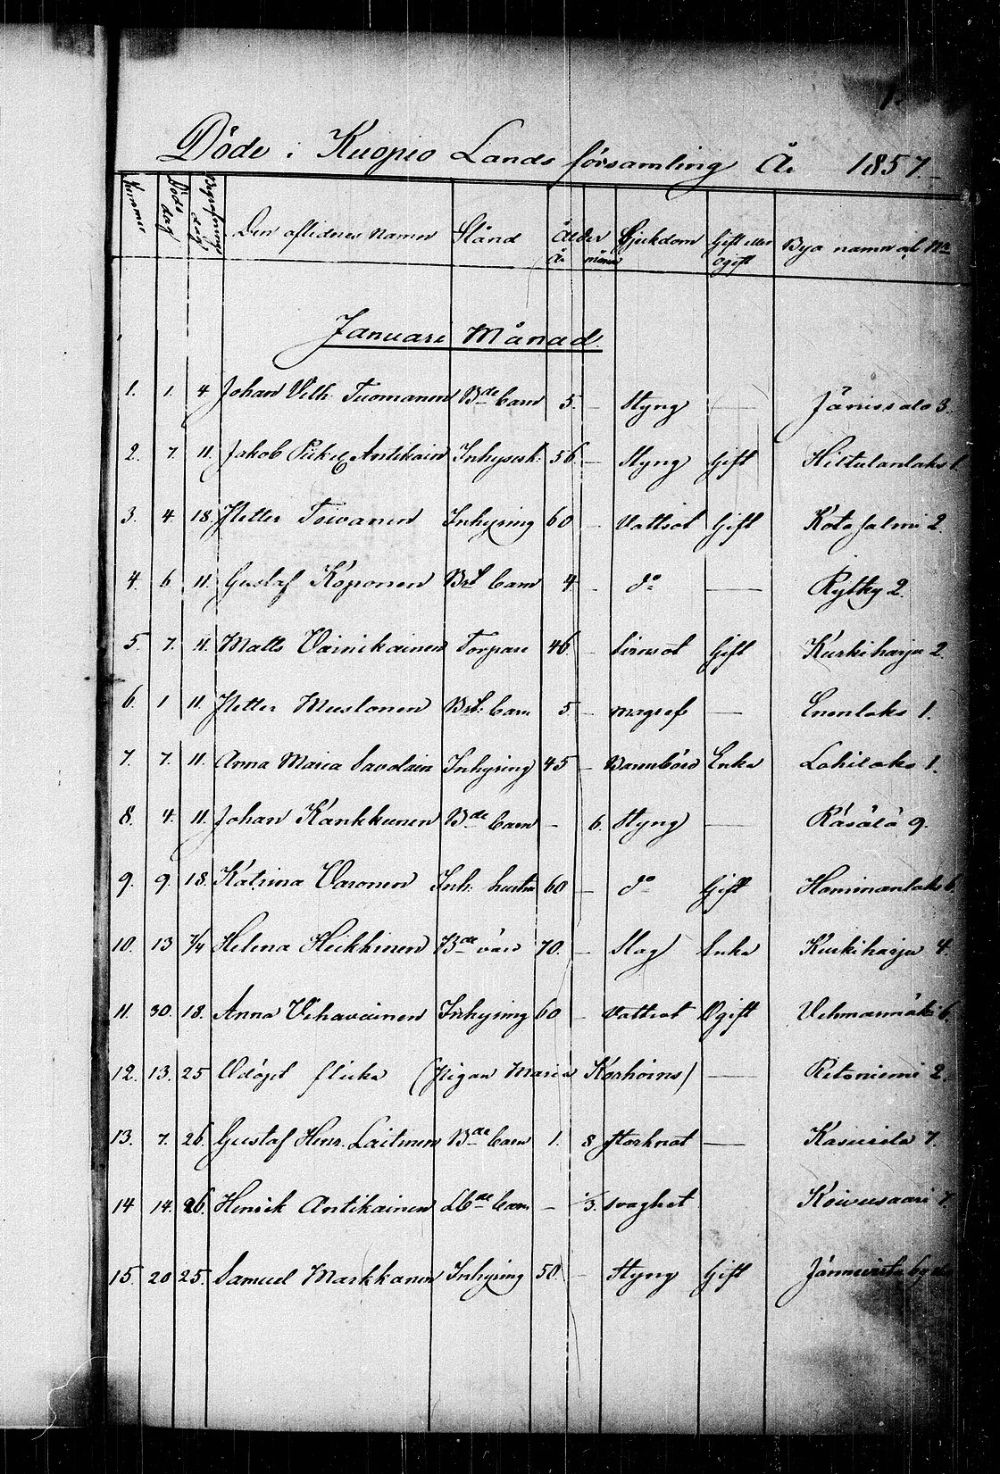 1.
Döde i Kuopio Lands församling År 1857
Nummer Döds dag Begrafnings dag Den aflidnes namn Stånd Ålder år månad Sjukdom Gift eller ogift Bya namn och No
Januari Månad.
1. 1. 4 Johan Vilh. Tuomanen Bde barn 5. - Styng — Jänissalo 3.
2. 7. 11. Jakob Antikain Inhysesk. 56 - Styng Gift Hiltulanlaks 1.
3. 4. 18. Petter Toivanen Inhysing 60 - Vattsot Gift Kotasalmi 2.
4. 6 11. Gustaf Koponen Bds barn 4. - do — Rytky 2.
5. 7. 11. Matts Vainikainen Torpare 46 - Gift Kurkiharju 2.
6. 1 11. Petter Mustonen barn 5. - magref — Enonlaks 1.
7. 7. 11. Anna Maria Savolain Inhysing 45 - Barnbörd Enka Lohilaks 1.
8. 4. 11. Johan Kankkunen Bde barn - 6. Styng — Räsälä 9.
9. 9. 18. Katrina Varonen Inh. hustru 60 - do Gift Haminanlaks 6.
10. 13 Helena Heikkinen Bde 70. - Slag Enka Kurkiharju 4.
11. 30. 18. Anna Vihavainen Inhysing 60 - Vattsot Ogift Vehmasmäki 6.
12. 13. 25 Odöpt flicka (Pigan Maria Korhoins) — Ritoniemi 2.
13. 7. 26 Gustaf Henr. Laitinen Bde barn 1. 8 — Kasurila 7.
14 14. 26. Henrik Antikainen barn - 1/3. svaghet Koivusaari 7.
15. 20 25. Samuel Markkanen Inhysing 50. - Styng Gift Jännevirta by